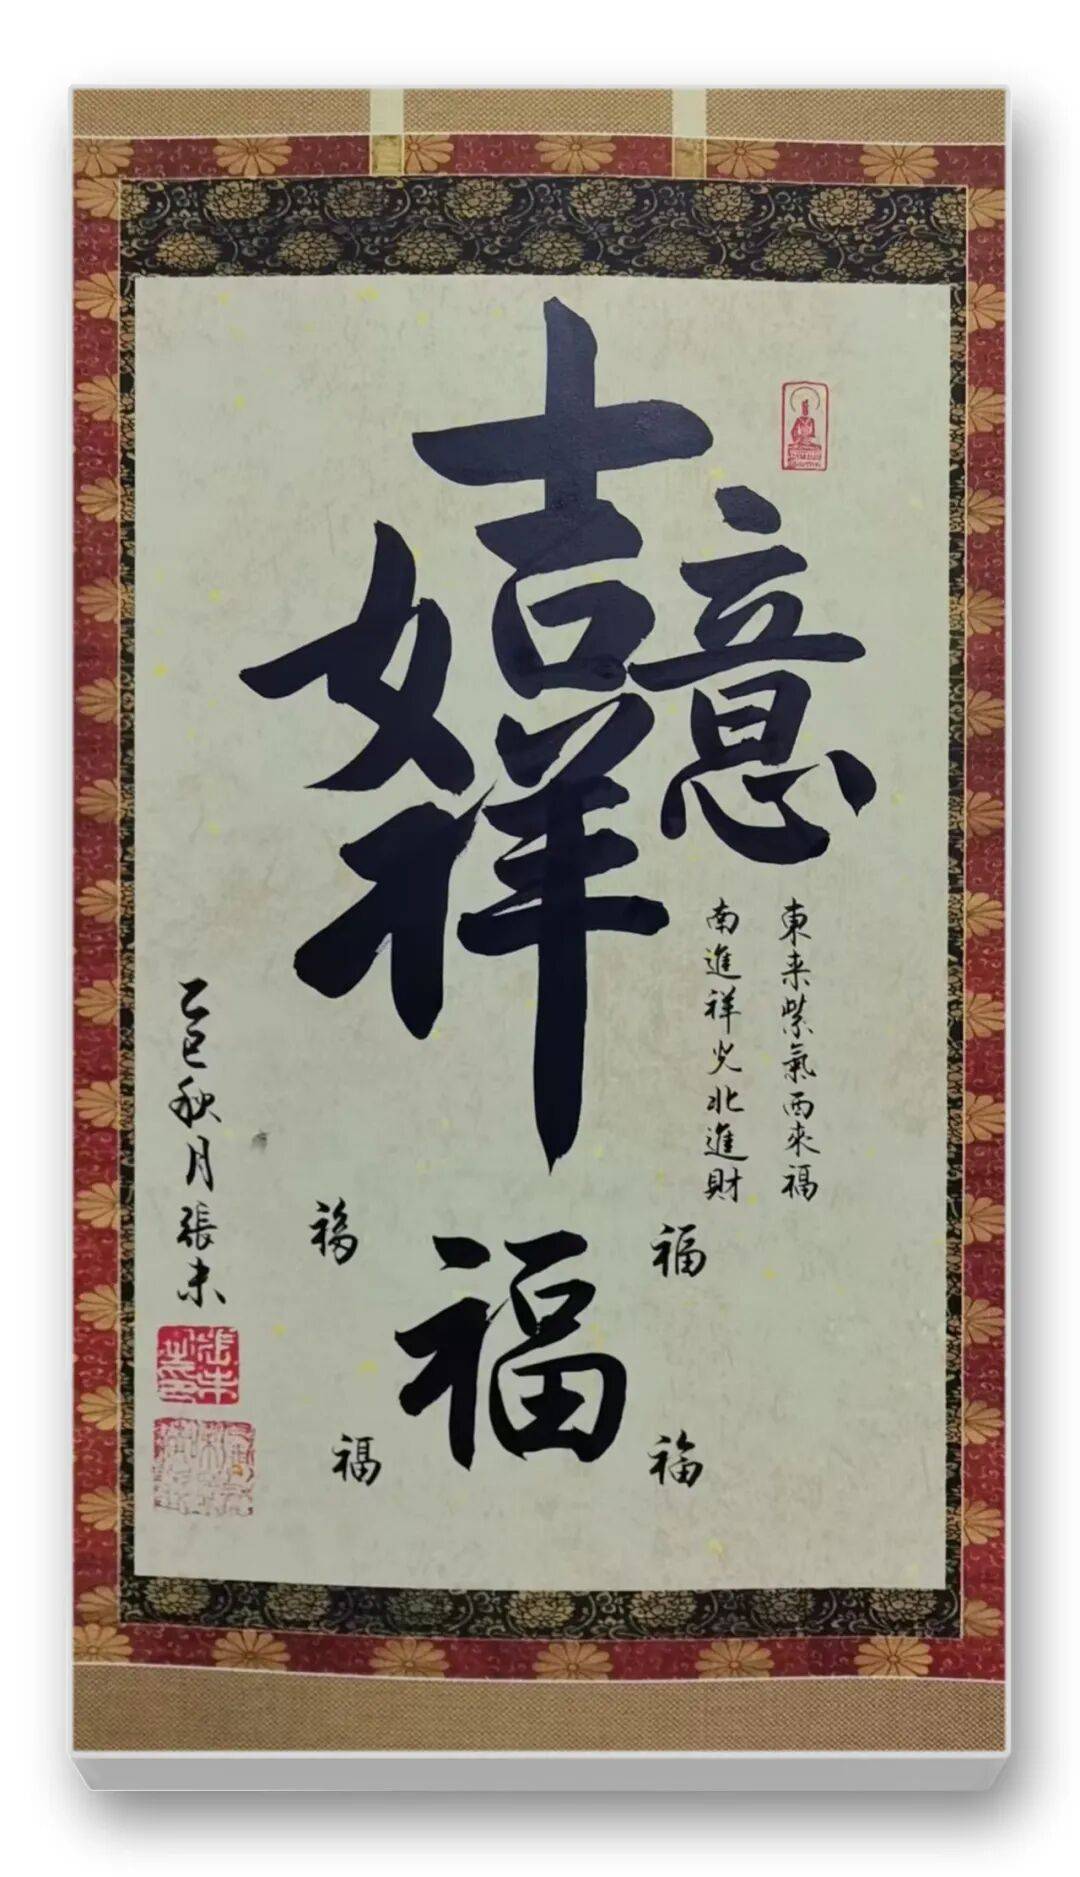 吉祥如意
東来紫氣西來福
南進祥光北進財
福
福
福
福
福
乙巳秋月張未
張未之印